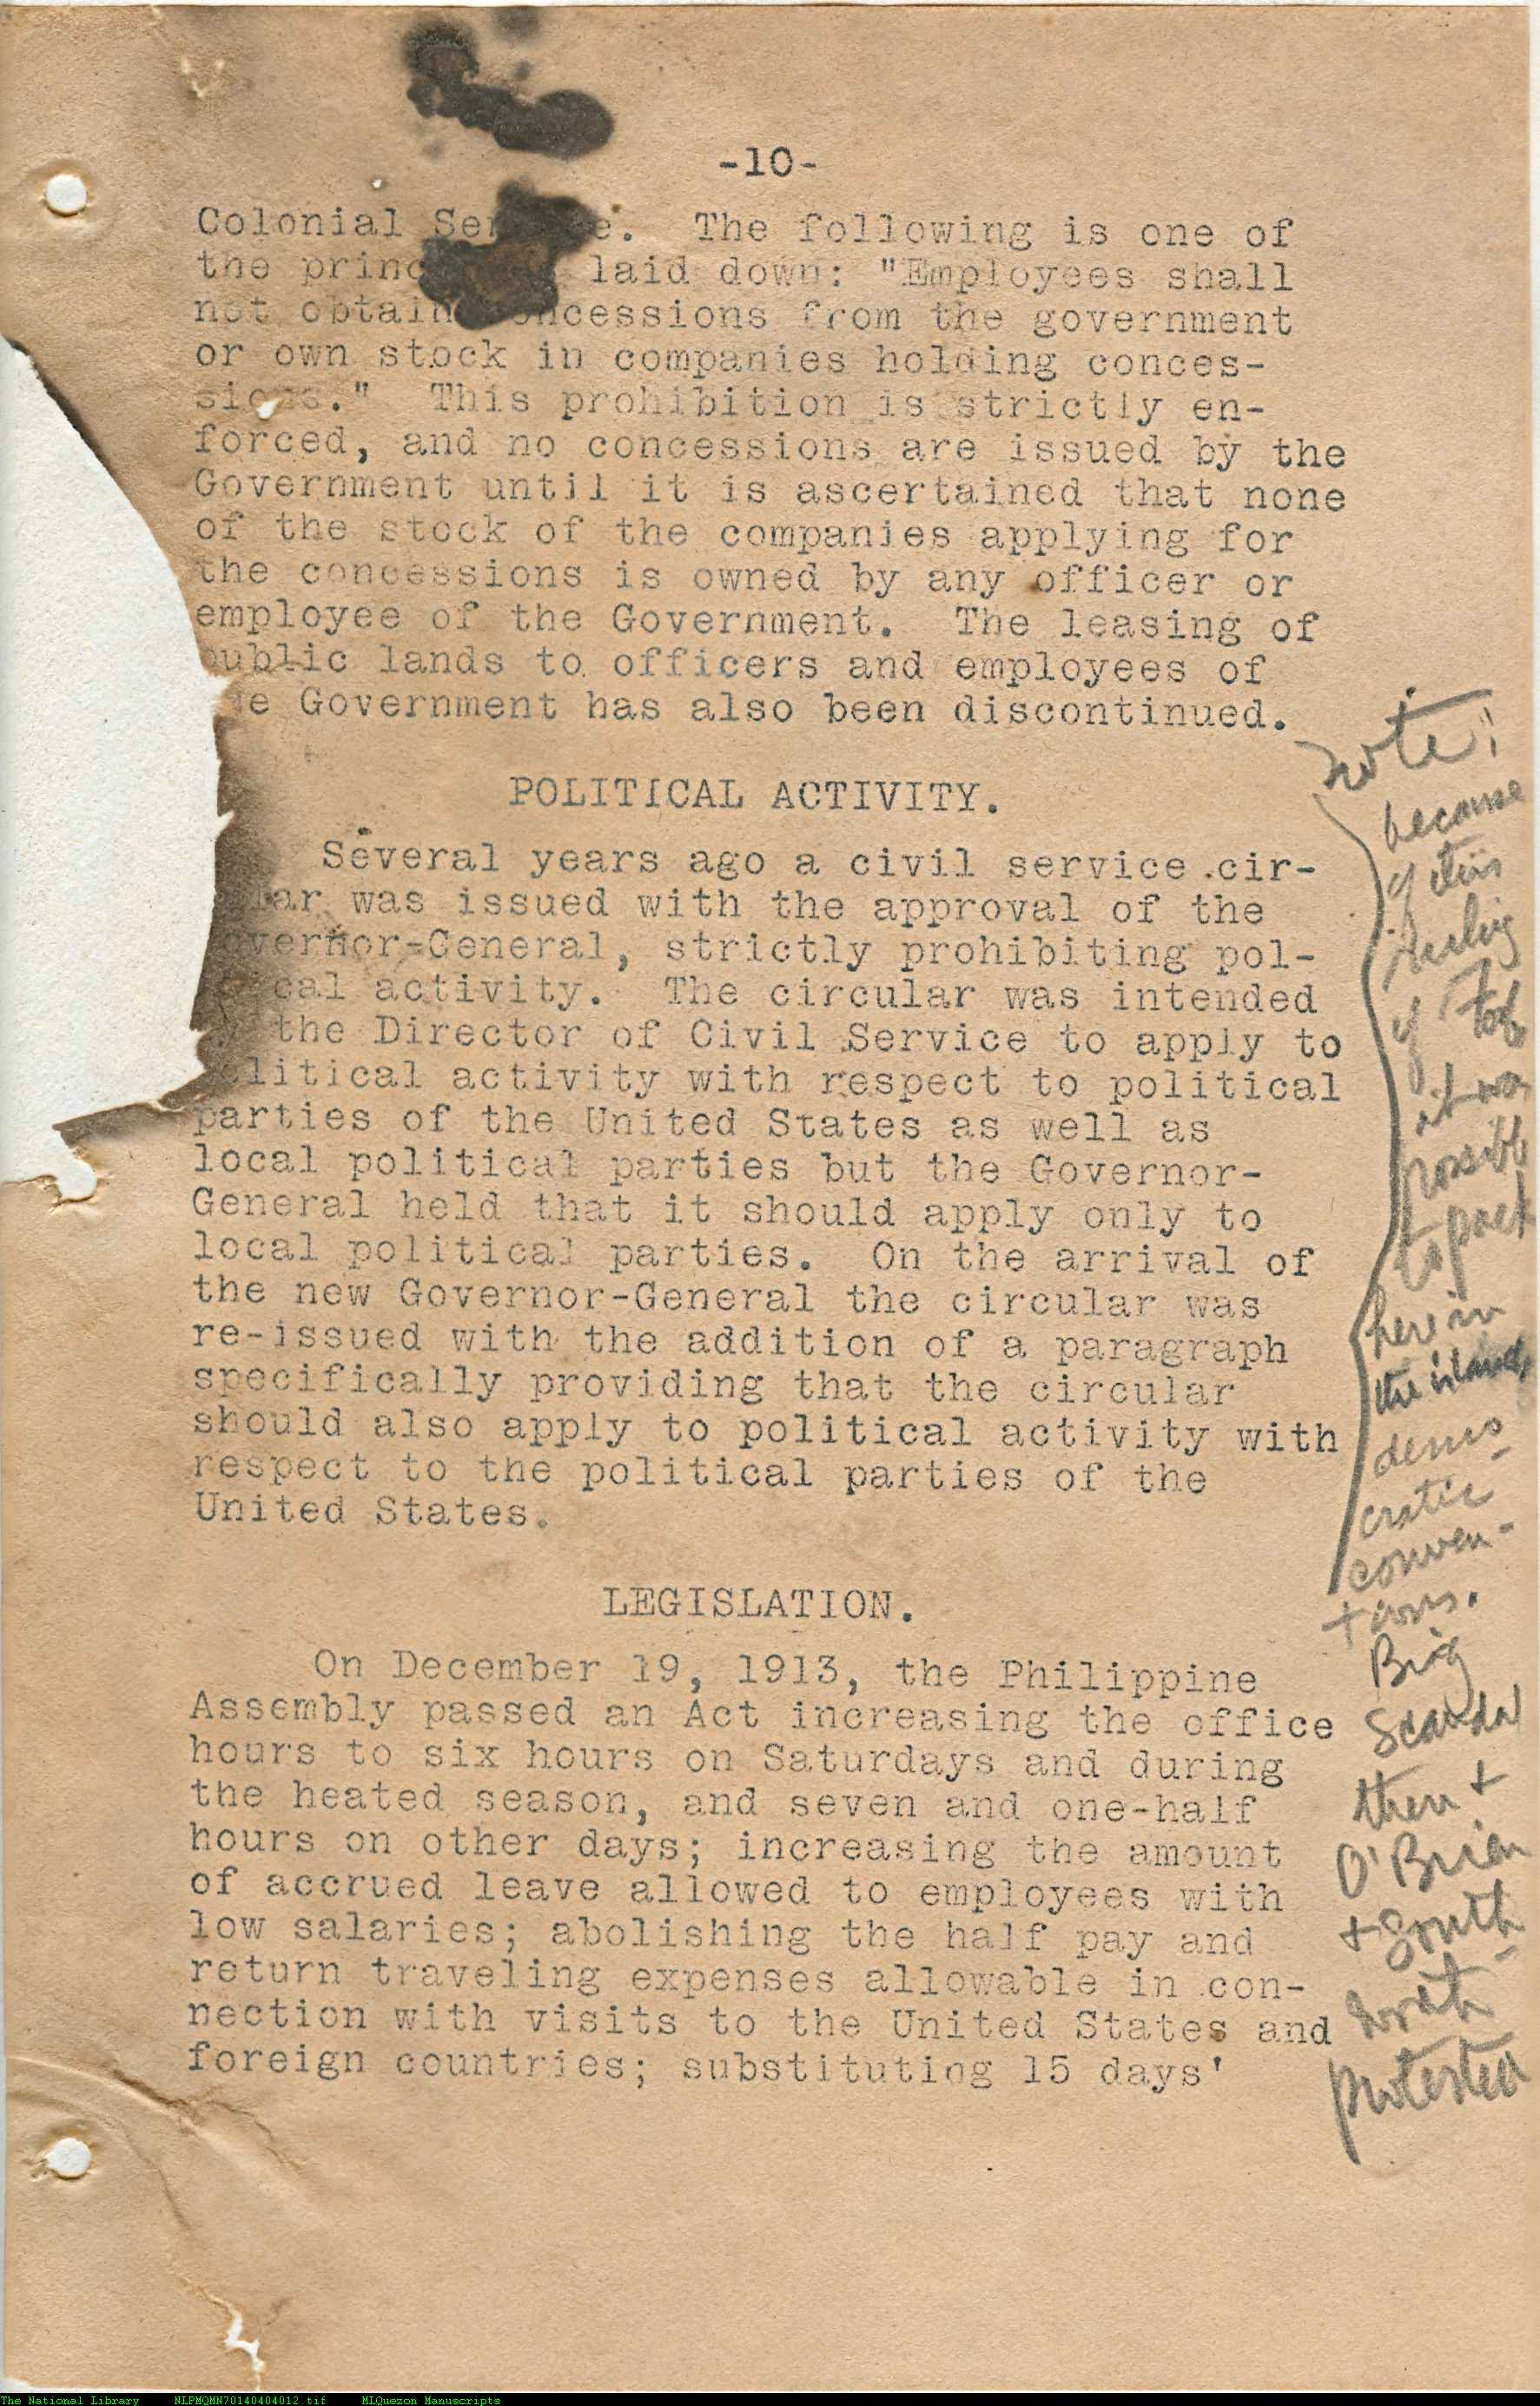 -10-
Colonial Se e. The following is one of
the princ laid down: "Employees shall
not obtain ncessions from the government
or own stock in companies holding conces-
sions." This prohibition is strictly en-
forced, and no concessions are issued by the
Government until it is ascertained that none
of the stock of the companies applying for
the concessions is owned by any officer or
employee of the Government. The leasing of
public lands to officers and employees of
e Government has also been discontinued.
POLITICAL ACTIVITY.
Several years ago a civil service cir-
lar was issued with the approval of the
overnor-General, strictly prohibiting pol-
cal activity. The circular was intended
the Director of Civil Service to apply to
litical activity with respect to political
parties of the United States as well as
local political parties but the Governor-
General held that it should apply only to
local political parties. On the arrival of
the new Governor-General the circular was
re-issued with the addition of a paragraph
specifically providing that the circular
should also apply to political activity with
respect to the political parties of the
United States.
LEGISLATION.
On December 19, 1913, the Philippine
Assembly passed an Act increasing the office
hours to six hours on Saturdays and during
the heated season, and seven and one-half
hours on other days; increasing the amount
of accrued leave allowed to employees with
low salaries; abolishing the half pay and
return traveling expenses allowable in con-
nection with visits to the United States and
foreign countries; substituting 15 days'
note:
because
of this
ruling
of
it was
possible
to pack
here in
the islands
demo
cratic
conven-
tions.
Big
Scandal
then +
O'Brien
+ South-
worth
protested
The National Library NLPMQMN70140404012.tif MLQuezon Manuscripts